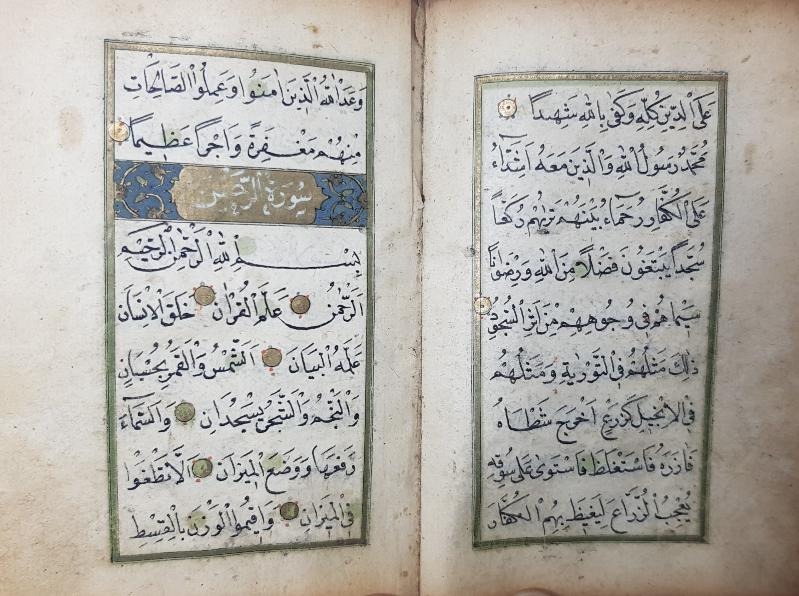 عَلَى الدِّينِ كُلِّهِ وَكَفٰى بِاللّٰهِ شَهِيدًا
مُحَمَّدٌ رَسُولُ اللّٰهِ وَالَّذِينَ مَعَهُ اَشِدَّاءُ
عَلَى الْكُفَّارِ رُحَمَاءُ بَيْنَهُمْ تَرٰيهُمْ رُكَّعًا
سُجَّدًا يَبْتَغُونَ فَضْلًا مِنَ اللّٰهِ وَرِضْوَانًا
سِيمَاهُمْ فِى وُجُوهِهِمْ مِنْ اَثَرِ السُّجُودِ
ذٰلِكَ مَثَلُهُمْ فِى التَّوْرٰيةِ وَمَثَلُهُمْ
فِى الْاِنْجِيلِ كَزَرْعٍ اَخْرَجَ شَطْاَهُ
فَاٰزَرَهُ فَاسْتَغْلَظَ فَاسْتَوٰى عَلٰى سُوقِهِ
يُعْجِبُ الزُّرَّاعَ لِيَغِيظَ بِهِمُ الْكُفَّارَ
وَعَدَ اللّٰهُ الَّذِينَ اٰمَنُوا وَعَمِلُوا الصَّالِحَاتِ
مِنْهُمْ مَغْفِرَةً وَاَجْرًا عَظِيمًا
سُورَةُ الرَّحْمٰنِ
بِسْمِ اللّٰهِ الرَّحْمٰنِ الرَّحِيمِ
اَلرَّحْمٰنُ عَلَّمَ الْقُرْاٰنَ خَلَقَ الْاِنْسَانَ
عَلَّمَهُ الْبَيَانَ اَلشَّمْسُ وَالْقَمَرُ بِحُسْبَانٍ
وَالنَّجْمُ وَالشَّجَرُ يَسْجُدَانِ وَالسَّمَاءَ
رَفَعَهَا وَوَضَعَ الْمِيزَانَ اَلَّا تَطْغَوْا
فِى الْمِيزَانِ وَاَقِيمُوا الْوَزْنَ بِالْقِسْطِ